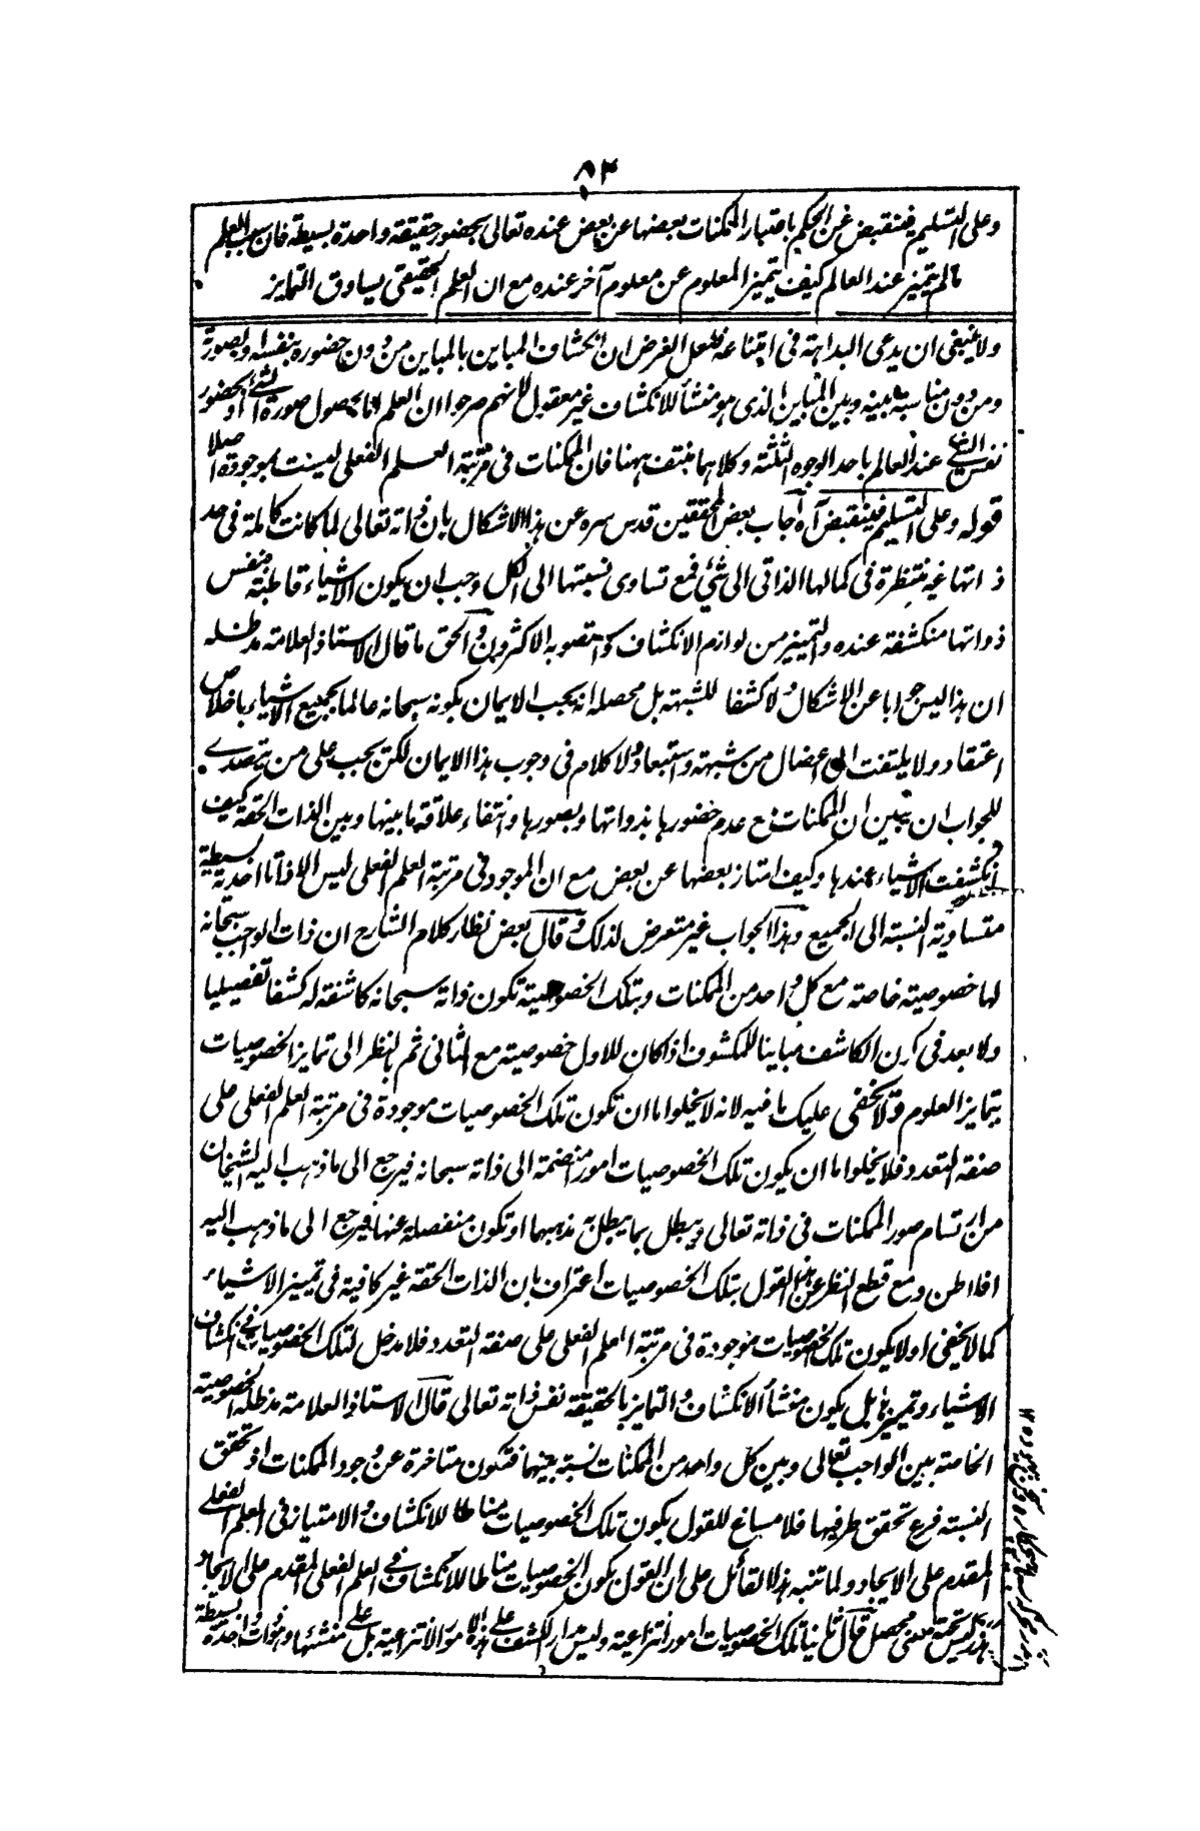 ٨٣
وعلى التسليم فينقبض عن الحكم باعتبار الممكنات بعضها عن بعض عنده تعالى بحضور حقيقة واحدة بسيطة فان سبب العلم
مالم يتميز عند العالم كيف يتميز المعلوم عن معلوم آخر عنده مع ان العلم الحقيقى يساوق التمايز
ولا ينبغى ان يدعى البداهة فى امتناعه فلعل الغرض ان انكشاف المباين بالمباين من دون حضوره بنفسه او بصورته
ومن دون مناسبة بينه وبين المباين الذى هو منشأ للانكشاف غير معقول لانهم صرحوا ان العلم اما بحصول صورة الشئ او بحضور
نفس الشئ عند العالم باحد الوجوه الثلثة وكلاهما منتف ههنا فان الممكنات فى مرتبة العلم الفعلى ليست بموجودة اصلا
قوله وعلى التسليم فينقبض آه اجاب بعض المحققين قدس سره عن هذا الاشكال بان ذاته تعالى لما كانت كاملة فى حد
ذاتها غير منتظرة فى كمالها الذاتى الى شئ فمع تساوى نسبتها الى الكل وجب ان يكون الاشياء قاطبة بنفس
ذواتها منكشفة عنده والتميز من لوازم الانكشاف كما تصوبه الاكثرون والحق ما قال الاستاذ العلامة مد ظله
ان هذا ليس جوابا عن الاشكال ولا كشفا للشبهة بل محصله انه يجب الايمان بكونه سبحانه عالما بجميع الاشياء باخلاص
اعتقاد ولا يلتفت الى اعضال من شبهة واستبعاد ولا كلام فى وجوب هذا الايمان لكن يجب على من يتصدى
للجواب ان يبين ان الممكنات مع عدم حضورها بذواتها وبصورها وانتفاء علاقة ما بينها وبين الذات الحقة كيف
انكشفت الاشياء عندها وكيف امتاز بعضها عن بعض مع ان الموجود فى مرتبة العلم الفعلى ليس الا ذاتا احدية بسيطة
متساوية النسبة الى الجميع وهذا الجواب غير متعرض لذلك وقال بعض نظار كلام الشارح ان ذات الواجب سبحانه
لها خصوصية خاصة مع كل واحد من الممكنات وبتلك الخصوصية تكون ذاته سبحانه كاشفة له كشفا تفصيليا
ولا بعد فى كون الكاشف مباينا للمكشوف اذا كان للاول خصوصية مع الثانى ثم بالنظر الى تمايز الخصوصيات
يتمايز العلوم ولا يخفى عليك ما فيه لانه لا يخلوا اما ان تكون تلك الخصوصيات موجودة فى مرتبة العلم الفعلى على
صفة التعدد فلا يخلوا اما ان يكون تلك الخصوصيات امور امنضمة الى ذاته سبحانه فيرجع الى ما ذهب اليه الشيخان
من ارتسام صور الممكنات فى ذاته تعالى ويبطل بما يبطل به مذهبهما او تكون منفصلة عنها فيرجع الى ما ذهب اليه
افلاطن ومع قطع النظر عن هذا القول بتلك الخصوصيات اعتراف بان الذات الحقة غير كافية فى تميز الاشياء
كما لا يخفى او لا يكون تلك الخصوصيات موجودة فى مرتبة العلم الفعلى على صفة التعدد فلا مدخل لتلك الخصوصيات فى انكشاف
الاشياء وتميزها بل يكون منشأ الانكشاف والتمايز بالحقيقة نفس ذاته تعالى قال الاستاذ العلامة مد ظله الخصوصية
الخاصة بين الواجب تعالى وبين كل واحد من الممكنات نسبة بينهما فتكون متاخرة عن وجود الممكنات اذ تحقق
النسبة فرع تحقق طرفيها فلا مساغ للقول بكون تلك الخصوصيات مناطا للانكشاف والامتياز فى العلم الفعلى
المقدم على الايجاد ولما تنبه هذا القائل على ان القول بكون الخصوصيات مناطا للانكشاف فى العلم الفعلى المقدم على الايجاد
ليس تحته معنى محصل قال ثانيا تلك الخصوصيات امور انتزاعية وليس مدار الكشف على هذه الامور الانتزاعية بل على منشئها وهو ذات واحدة بسيطة